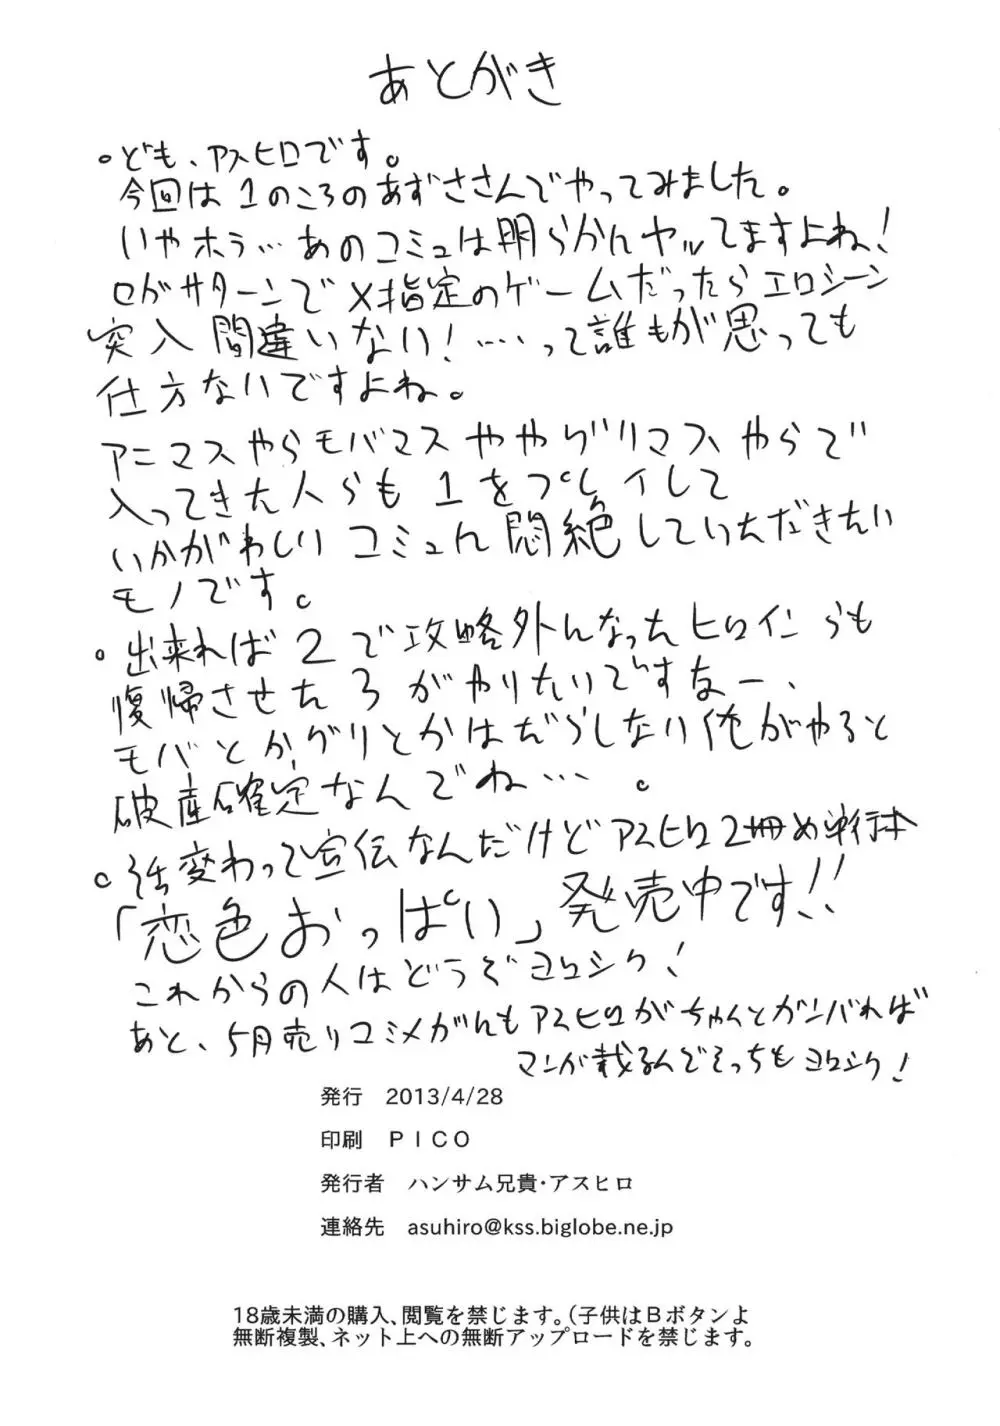 あとがき
・ども、アスヒロです。
今回は1のころのあずささんでやってみました。
いやホラ…あのコミュは明らかんヤッてますよね!
ロがサターンでX指定のゲームだったらエロシーン
突入間違いない!……って誰もが思っても
仕方ないですよね。
アニマスやらモバマスややグリマスやらで
入ってきた人らも1をプレイして
いかがわしいコミュに悶絶していただきたい
モノです。
・出来れば2で攻略外んなったヒロインらも
復帰させた3がやりたいですなー、
モバとかグリとかはだらしない俺がやると
破産確定なんでね…。
・話変わって宣伝なんだけどアスヒロ2冊め単行本
「恋色おっぱい」発売中です!!
これからの人はどうぞヨロシク!
あと、5月売りコミメガんもアスヒロがちゃんとガンバれば
マンが載るんでそっちもヨロシク!
発行 2013/4/28
印刷 PICO
発行者 ハンサム兄貴・アスヒロ
連絡先 asuhiro@kss.biglobe.ne.jp
18歳未満の購入、閲覧を禁じます。(子供はBボタンよ
無断複製、ネット上への無断アップロードを禁じます。